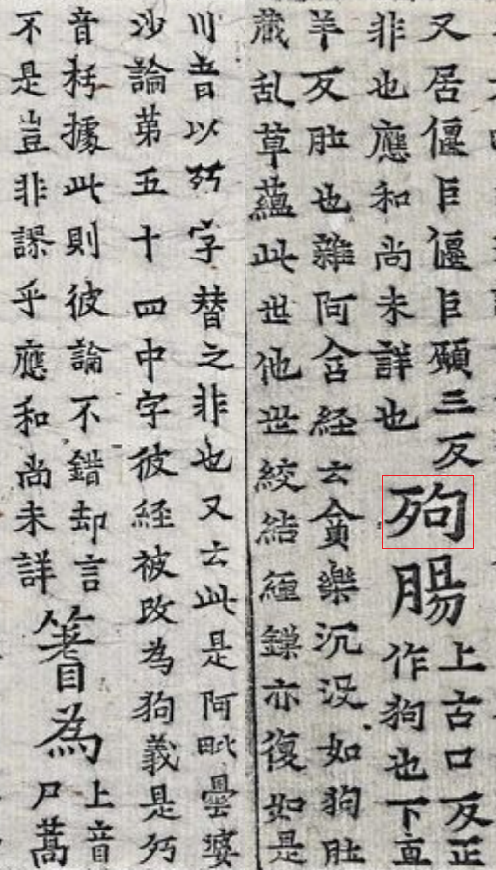 又居偃巨偃巨願三反
非也應和尚未詳也
⿰歹句腸
上古口反正
作狗也下直
羊反肚也雜阿含経云貪樂沉没如狗肚
藏乱草蘊此世他世絞結緾鏁亦復如是
川音以㱙字替之非也又云此是阿毗曇婆
沙論第五十四中字彼経被改為狗義是㱙
音據此則彼論不錯却言
不是豈非謬乎應和尚未詳
為
上音
尸蒿